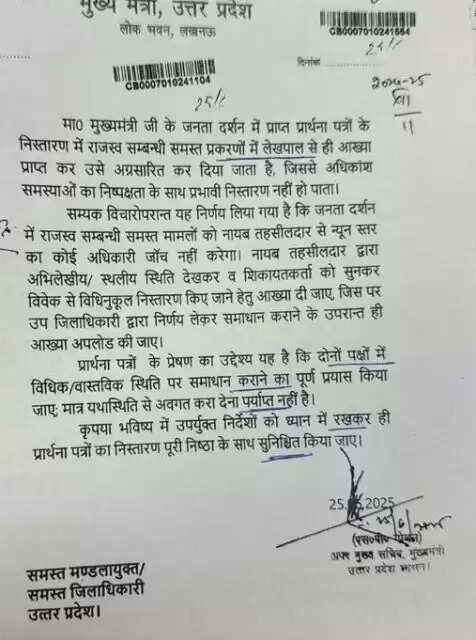 मुख्य मंत्री, उत्तर प्रदेश
लोक भवन, लखनऊ
CB0007010241554
दिनांक
CB0007010241104
25/6
2024-25
11
मा0 मुख्यमंत्री जी के जनता दर्शन में प्राप्त प्रार्थना पत्रों के
निस्तारण में राजस्व सम्बन्धी समस्त प्रकरणों में लेखपाल से ही आख्या
प्राप्त कर उसे अग्रसारित कर दिया जाता है, जिससे अधिकांश
समस्याओं का निष्पक्षता के साथ प्रभावी निस्तारण नहीं हो पाता।
सम्यक विचारोपरान्त यह निर्णय लिया गया है कि जनता दर्शन
में राजस्व सम्बन्धी समस्त मामलों को नायब तहसीलदार से न्यून स्तर
का कोई अधिकारी जाँच नहीं करेगा। नायब तहसीलदार द्वारा
अभिलेखीय/ स्थलीय स्थिति देखकर व शिकायतकर्ता को सुनकर
विवेक से विधिनुकूल निस्तारण किए जाने हेतु आख्या दी जाए, जिस पर
उप जिलाधिकारी द्वारा निर्णय लेकर समाधान कराने के उपरान्त ही
आख्या अपलोड की जाए।
प्रार्थना पत्रों के प्रेषण का उद्देश्य यह है कि दोनों पक्षों में
विधिक/वास्तविक स्थिति पर समाधान कराने का पूर्ण प्रयास किया
जाए; मात्र यथास्थिति से अवगत करा देना पर्याप्त नहीं है।
कृपया भविष्य में उपर्युक्त निर्देशों को ध्यान में रखकर ही
प्रार्थना पत्रों का निस्तारण पूरी निष्ठा के साथ सुनिश्चित किया जाए।
25. 2025
अपर मुख्य सचिव, मुख्यमंत्री
उत्तर प्रदेश शासन।
समस्त मण्डलायुक्त/
समस्त जिलाधिकारी
उत्तर प्रदेश।